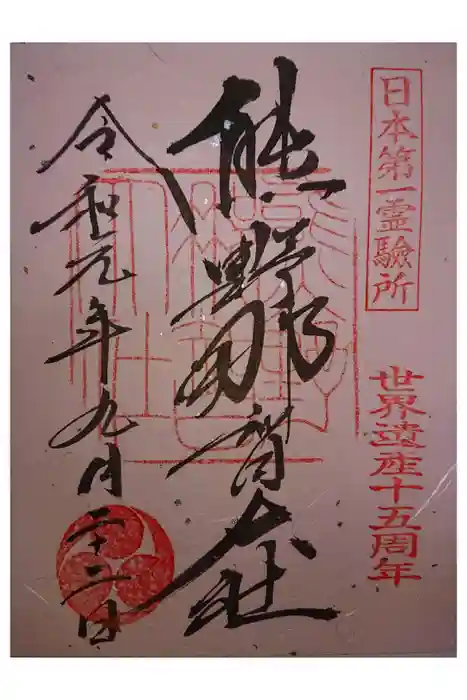 日本第一霊験所
世界遺産十五周年
熊野那智大社
令和元年九月二十二日